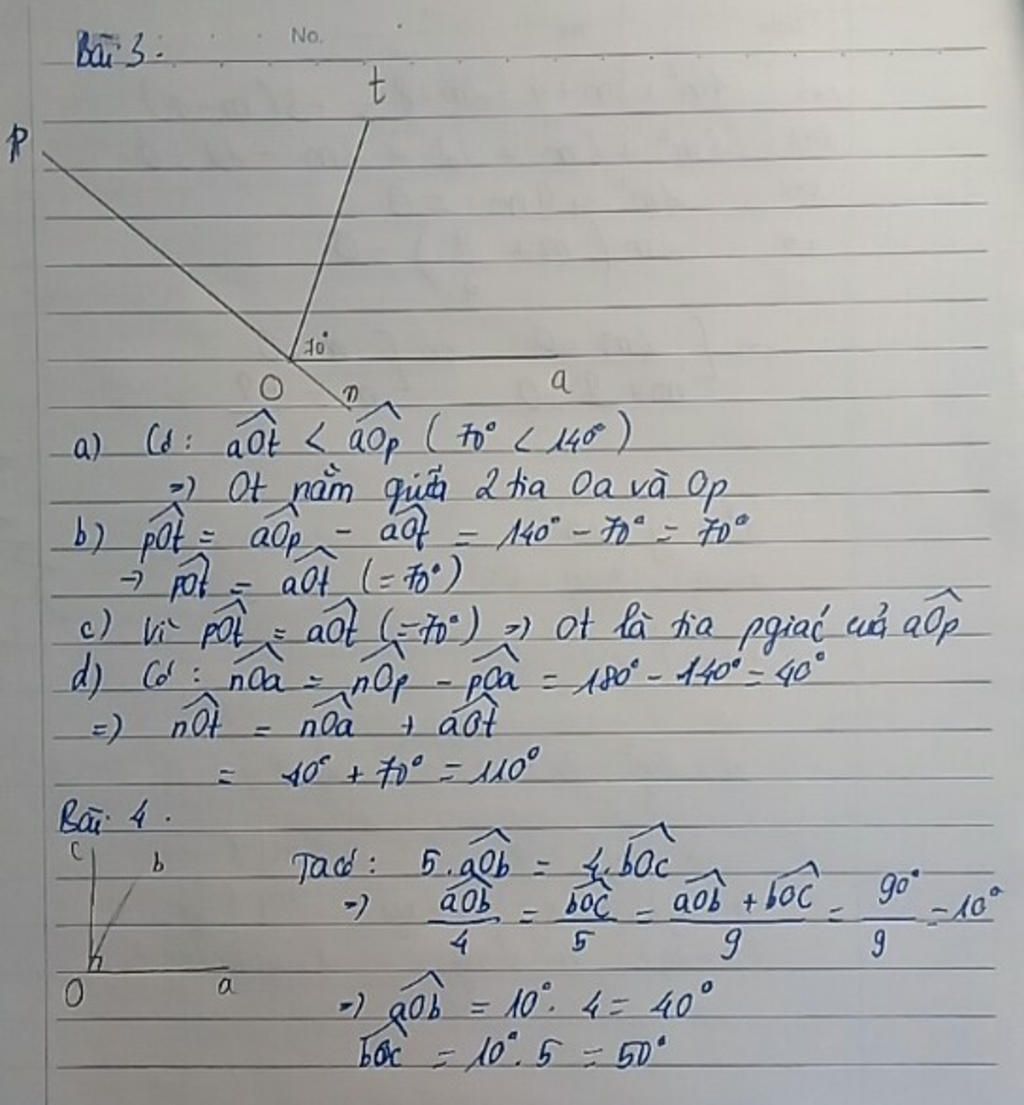 No.
Bài 3:
t
p
70°
O
n
a
a) Có: aOt < aOp ( 70° < 140° )
=> Ot nằm giữa 2 tia Oa và Op
b) pOt = aOp - aOt = 140° - 70° = 70°
-> pOt = aOt (= 70°)
c) Vì pOt = aOt (= 70°) => Ot là tia pgiác của aOp
d) Có: nOa = nOp - pOa = 180° - 140° = 40°
=> nOt = nOa + aOt
= 40° + 70° = 110°
Bài 4.
c
b
O
a
Ta có: 5.aOb = 4.bOc
=> aOb/4 = bOc/5 = (aOb + bOc)/9 = 90°/9 = 10°
=> aOb = 10°. 4 = 40°
bOc = 10°. 5 = 50°